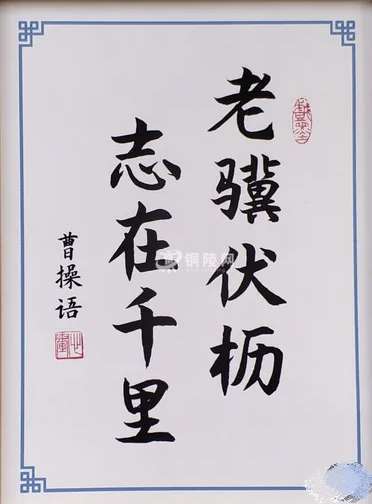 老骥伏枥
志在千里
曹操语
铜陵网